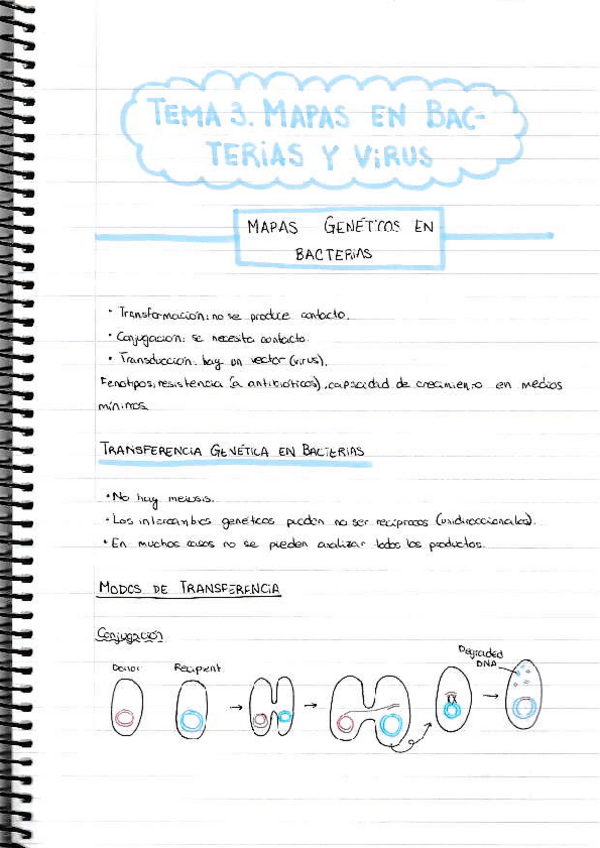 TEMA 3. MAPAS EN BAC-
TERIAS Y VIRUS
MAPAS GENÉTICOS EN
BACTERIAS
· Transformación: no se produce contacto.
· Conjugación: se necesita contacto.
· Transducción: hay un vector (virus).
Fenotipos, resistencia (a antibióticos), capacidad de crecimiento en medios
mínimos.
TRANSFERENCIA GENÉTICA EN BACTERIAS
· No hay meiosis.
· Los intercambios genéticos pueden no ser recíprocos (unidireccionales).
· En muchos casos no se pueden analizar todos los productos.
MODOS DE TRANSFERENCIA
Conjugación
Donor Recipient
Degraded
DNA